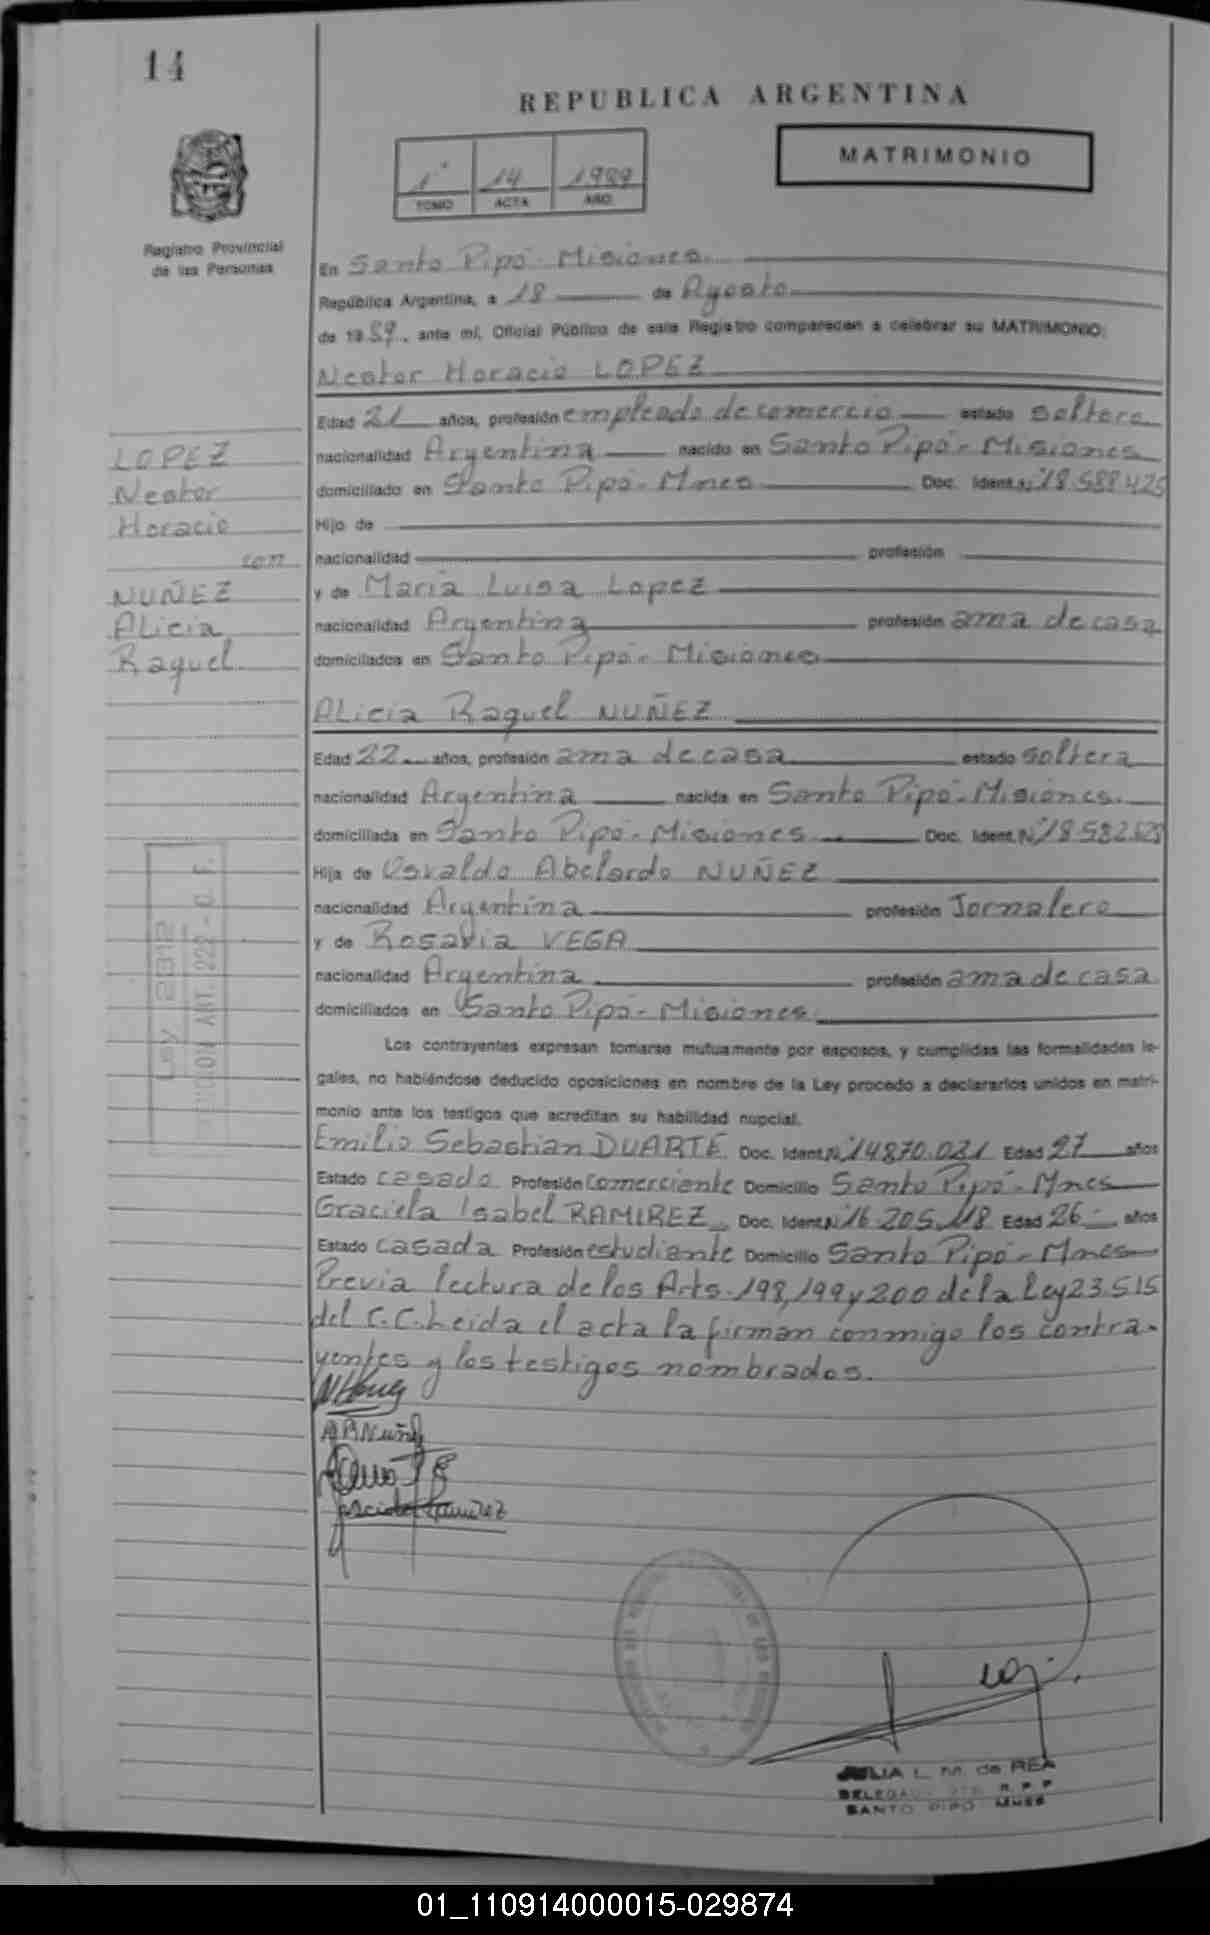 14
REPUBLICA ARGENTINA
MATRIMONIO
1° 14 1989
TOMO ACTA AÑO
Registro Provincial
de las Personas
En Santo Pipó - Misiones
República Argentina, a 18 de Agosto
de 1989, ante mí, Oficial Público de este Registro comparecen a celebrar su MATRIMONIO:
Nestor Horacio LOPEZ
Edad 21 años, profesión empleado de comercio estado soltero
nacionalidad Argentina nacido en Santo Pipó - Misiones
domiciliado en Santo Pipó - Mnes Doc. Ident. Nº 18.588.425
Hijo de
nacionalidad profesión
y de Maria Luisa Lopez
nacionalidad Argentina profesión ama de casa
domiciliados en Santo Pipó - Misiones
LOPEZ
Nestor
Horacio
con
NUÑEZ
Alicia
Raquel
Alicia Raquel NUÑEZ
Edad 22 años, profesión ama de casa estado soltera
nacionalidad Argentina nacida en Santo Pipó - Misiones.
domiciliada en Santo Pipó - Misiones Doc. Ident. Nº
Hija de Osvaldo Abelardo NUÑEZ
nacionalidad Argentina profesión Jornalero
y de Rosaria VEGA
nacionalidad Argentina profesión ama de casa
domiciliados en Santo Pipó - Misiones
Ley 2312
ART. 222 - C. F.
Los contrayentes expresan tomarse mutuamente por esposos, y cumplidas las formalidades le-
gales, no habiéndose deducido oposiciones en nombre de la Ley procedo a declararlos unidos en matri-
monio ante los testigos que acreditan su habilidad nupcial.
Emilio Sebastian DUARTE Doc. Ident. Nº 14870.021 Edad 27 años
Estado casado Profesión Comerciante Domicilio Santo Pipó - Mnes
Graciela Isabel RAMIREZ Doc. Ident. Nº 16.205.118 Edad 26 años
Estado casada Profesión estudiante Domicilio Santo Pipó - Mnes
Previa lectura de los Arts. 198, 199 y 200 de la Ley 23.515
del C.C. Leida el acta la firman conmigo los contra-
yentes y los testigos nombrados.
ARNuñez
Ramirez
JULIA L. M. de REA
SANTO PIPO MNES
01_110914000015-029874